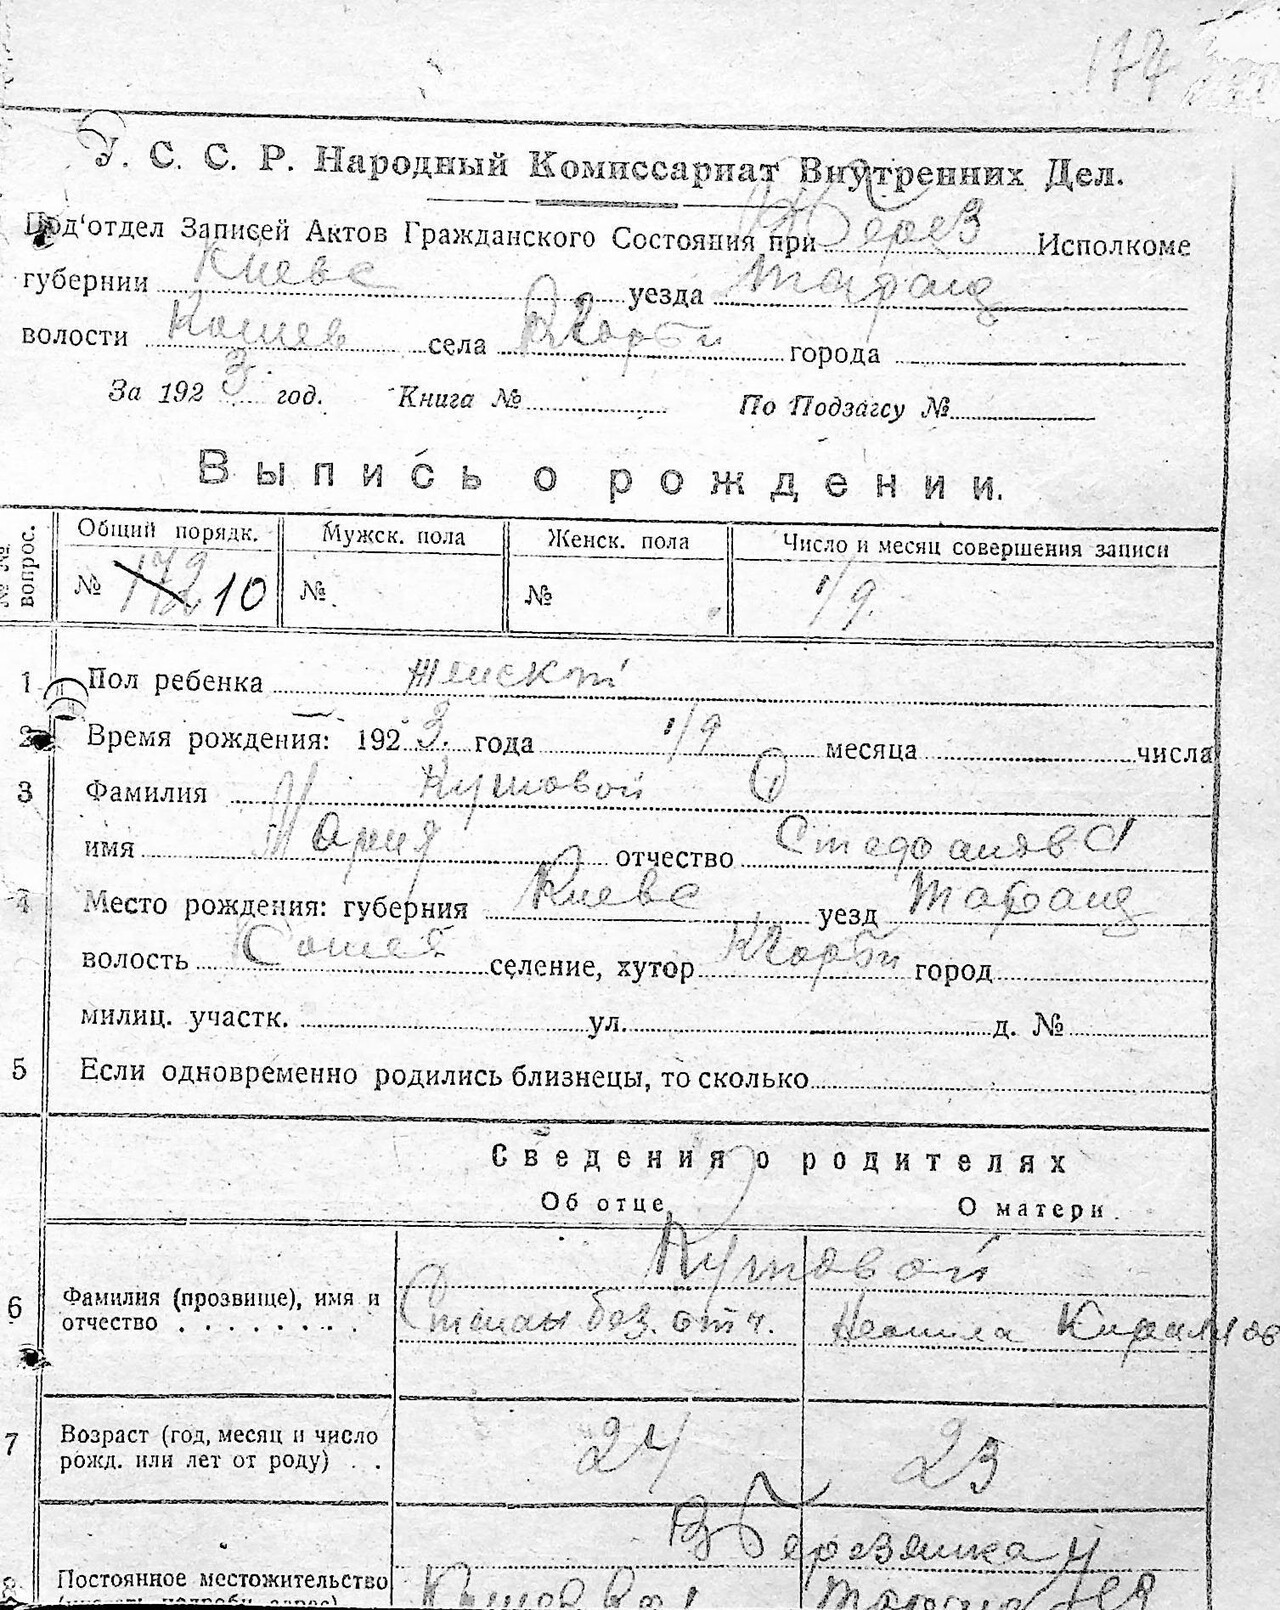 174
У. С. С. Р. Народный Комиссариат Внутренних Дел.
Под'отдел Записей Актов Гражданского Состояния при В Берез Исполкоме
губернии Киевс уезда Таращ
волости Кошев села города
За 1923 год. Книга № По Подзагсу №
Выпись о рождении.
№№ вопрос. Общий порядк. Мужск. пола Женск. пола Число и месяц совершения записи
№ 172 10 № № 1/9.
1 Пол ребенка женской
2 Время рождения: 1923. года 1/9 месяца числа
3 Фамилия Кутовой
имя Мария отчество Стефанов
4 Место рождения: губерния Киевс уезд Таращ
волость селение, хутор город
милиц. участк. ул. д. №
5 Если одновременно родились близнецы, то сколько
Сведения о родителях
Об отце О матери
Кутовой
6 Фамилия (прозвище), имя и отчество Степан без. отч. Кирилов
7 Возраст (год, месяц и число рожд. или лет от роду) 24 23
В Березянка
8 Постоянное местожительство